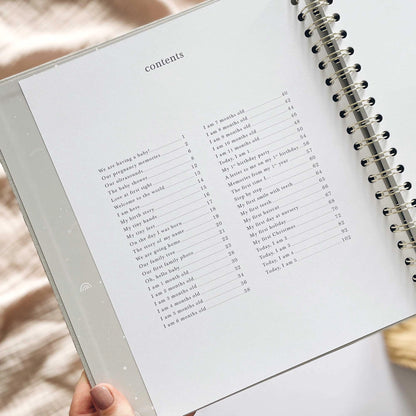 contents
We are having a baby! 1
Our pregnancy memories 2
Our ultrasounds 6
The baby shower 8
Love at first sight
Welcome to the world
I am here
My birth story
My tiny hands
My tiny feet
On the day I was born
The story of my name
We are going home
Our family tree
Our first family photo
Oh, hello baby
I am 1 month old
I am 2 months old
I am 3 months old 34
I am 4 months old 36
I am 5 months old
I am 6 months old 38
I am 7 months old 40
I am 8 months old 42
I am 9 months old 44
I am 10 months old
I am 11 months old 48
Today, I am 1
My 1st birthday party
A letter to me on my 1st birthday 57
Memories from my 1st year
The first time I
Step by step
My first smile with teeth 64
My first tooth
My first haircut
My first day at nursery
My first holiday
My first Christmas
Today, I am 2
Today, I am 3
Today, I am 4
Today, I am 5